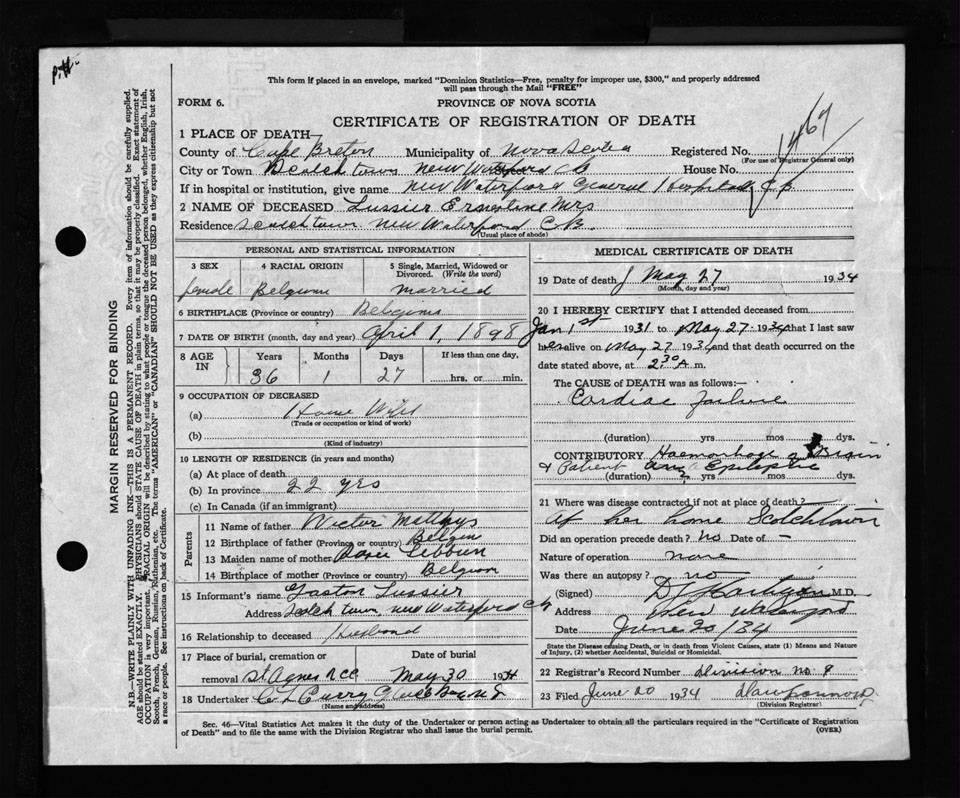 P.H.
This form if placed in an envelope, marked "Dominion Statistics—Free, penalty for improper use, $300," and properly addressed
will pass through the Mail "FREE"
FORM 6.
PROVINCE OF NOVA SCOTIA
CERTIFICATE OF REGISTRATION OF DEATH
1467
1 PLACE OF DEATH
County of Cape Breton Municipality of Nova Scotia Registered No.
(For use of Registrar General only)
City or Town Scotchtown New Waterford CB House No.
If in hospital or institution, give name New Waterford General Hospital CB
2 NAME OF DECEASED Lussier Ernestine Mrs
Residence Scotchtown New Waterford CB.
(Usual place of abode)
PERSONAL AND STATISTICAL INFORMATION
3 SEX 4 RACIAL ORIGIN 5 Single, Married, Widowed or
Divorced. (Write the word)
female Belgium married
6 BIRTHPLACE (Province or country) Belgium
7 DATE OF BIRTH (month, day and year) April 1, 1898
8 AGE IN Years Months Days If less than one day,
36 1 27 hrs. or min.
9 OCCUPATION OF DECEASED
(a) House Wife
(Trade or occupation or kind of work)
(b)
(Kind of industry)
10 LENGTH OF RESIDENCE (in years and months)
(a) At place of death
(b) In province 22 yrs
(c) In Canada (if an immigrant)
Parents
11 Name of father Victor
12 Birthplace of father (Province or country) Belgium
13 Maiden name of mother
14 Birthplace of mother (Province or country) Belgium
15 Informant's name Gaston Lussier
Address Scotchtown New Waterford CB
16 Relationship to deceased Husband
17 Place of burial, cremation or Date of burial
removal St Agnes RCC May 30 1934
18 Undertaker C L Curry Glace Bay NS
(Name and address)
MEDICAL CERTIFICATE OF DEATH
19 Date of death May 27 1934
(Month, day and year)
20 I HEREBY CERTIFY that I attended deceased from
Jan 1st 1931 to May 27 1934 that I last saw
her alive on May 27 1934 and that death occurred on the
date stated above, at 2.30 A m.
The CAUSE OF DEATH was as follows:
Cardiac Failure
(duration) yrs mos dys.
CONTRIBUTORY Haemorhage Brain
& Patient an Epileptic
(duration) yrs mos dys.
21 Where was disease contracted if not at place of death?
At her home Scotchtown
Did an operation precede death? no Date of -
Nature of operation none
Was there an autopsy? no
(Signed) M.D.
Address New Waterford
Date June 20/34
State the Disease causing Death, or in death from Violent Causes, state (1) Means and Nature
of Injury, (2) whether Accidental, Suicidal or Homicidal.
22 Registrar's Record Number division no. 9
23 Filed June 20 1934
(Division Registrar)
Sec. 46—Vital Statistics Act makes it the duty of the Undertaker or person acting as Undertaker to obtain all the particulars required in the "Certificate of Registration
of Death" and to file the same with the Division Registrar who shall issue the burial permit. (OVER)
MARGIN RESERVED FOR BINDING
N.B—WRITE PLAINLY WITH UNFADING INK—THIS IS A PERMANENT RECORD. Every item of information should be carefully supplied.
AGE should be stated EXACTLY. PHYSICIANS should STATE CAUSE OF DEATH in plain terms, so that it may be properly classified. Exact statement of
OCCUPATION is very important. RACIAL ORIGIN will be described by stating to what people or tongue the deceased person belonged, whether English, Irish,
Scotch, French, German, Russian, Ruthenian, etc. The terms "AMERICAN" or "CANADIAN" SHOULD NOT BE USED as they express citizenship but not
a race or people. See instructions on back of Certificate.